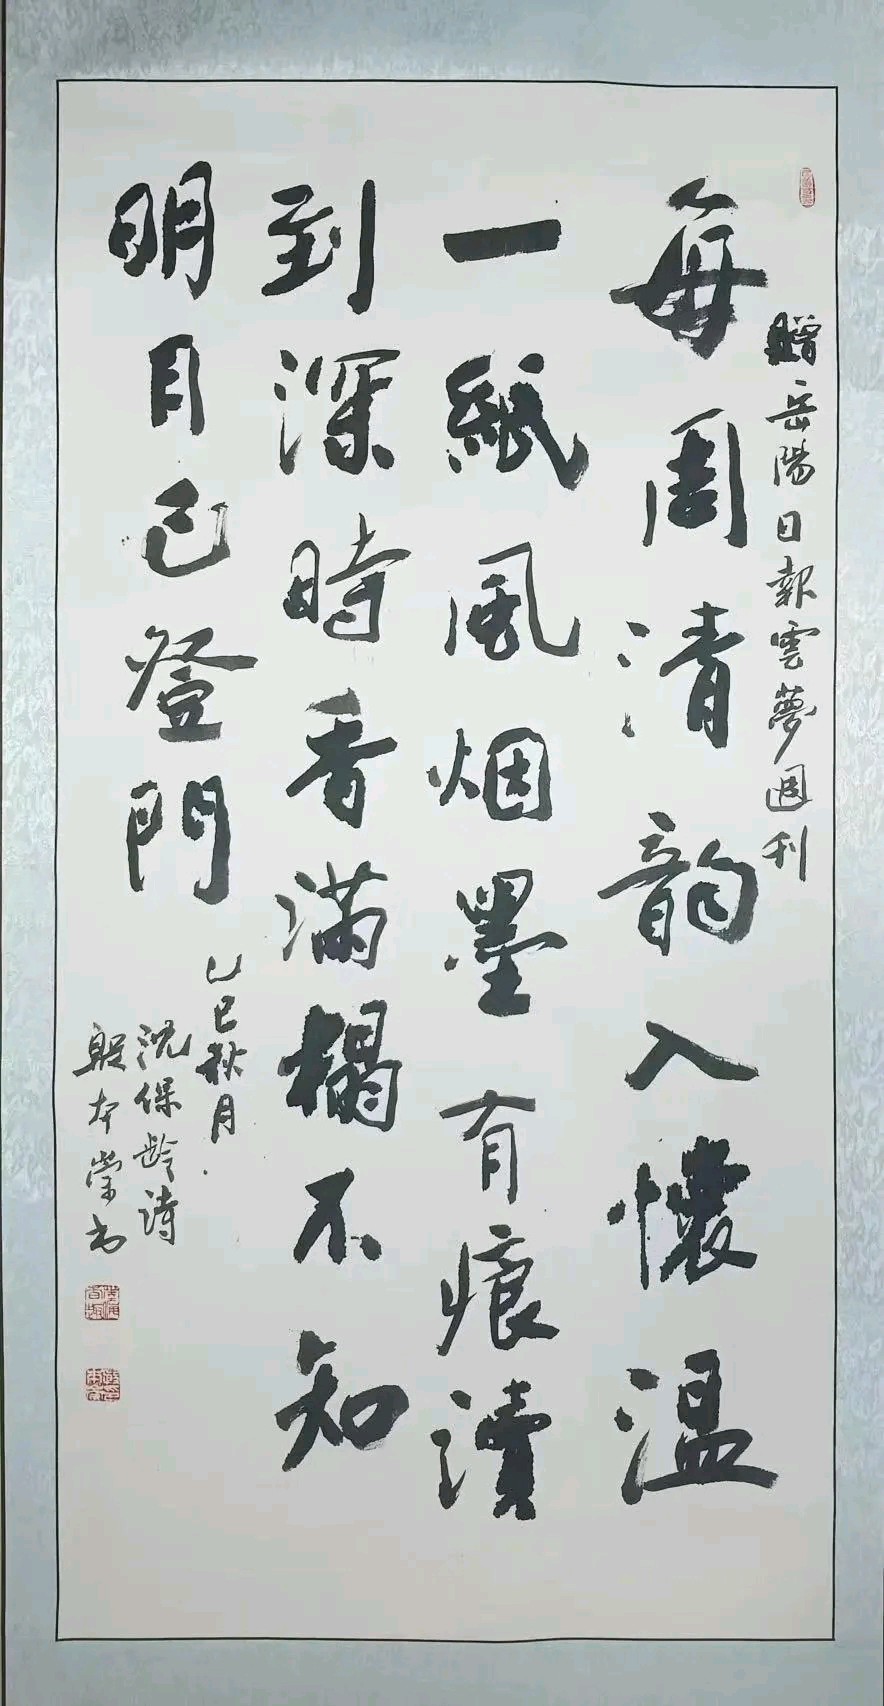 贈岳陽日報雲夢週刊
每周清韵入懷温
一紙風烟墨有痕讀
到深時香满榻不知
明月已登門
乙巳秋月
沈保龄詩
殷本崇书